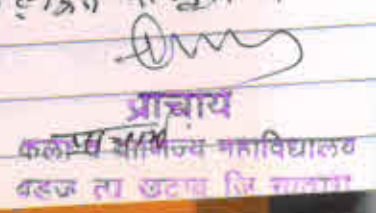 प्राचार्य
कला व वाणिज्य महाविद्यालय
वडूज ता खटाव जि सातारा